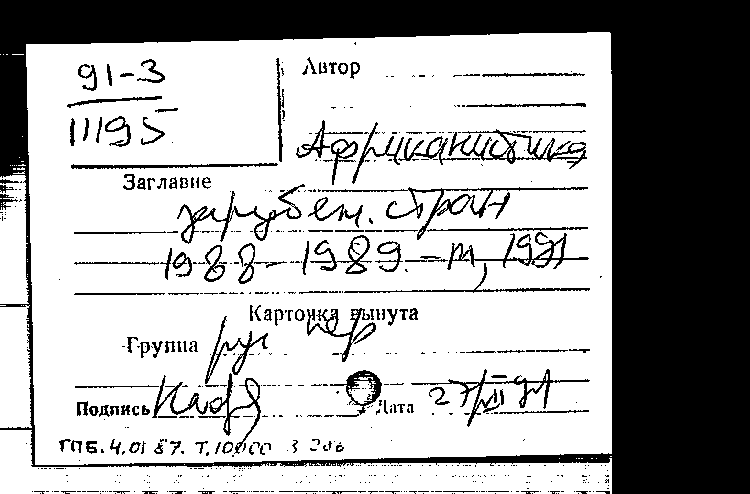 91-3
11195
Автор
Африканистика
Заглавие
зарубеж. стран
1988-1989. - М, 1991
Карточка вынута
Группа рус пер
Подпись
Дата 27/VII 91
ГПБ. 4.01 87. Т. 10000 З 286